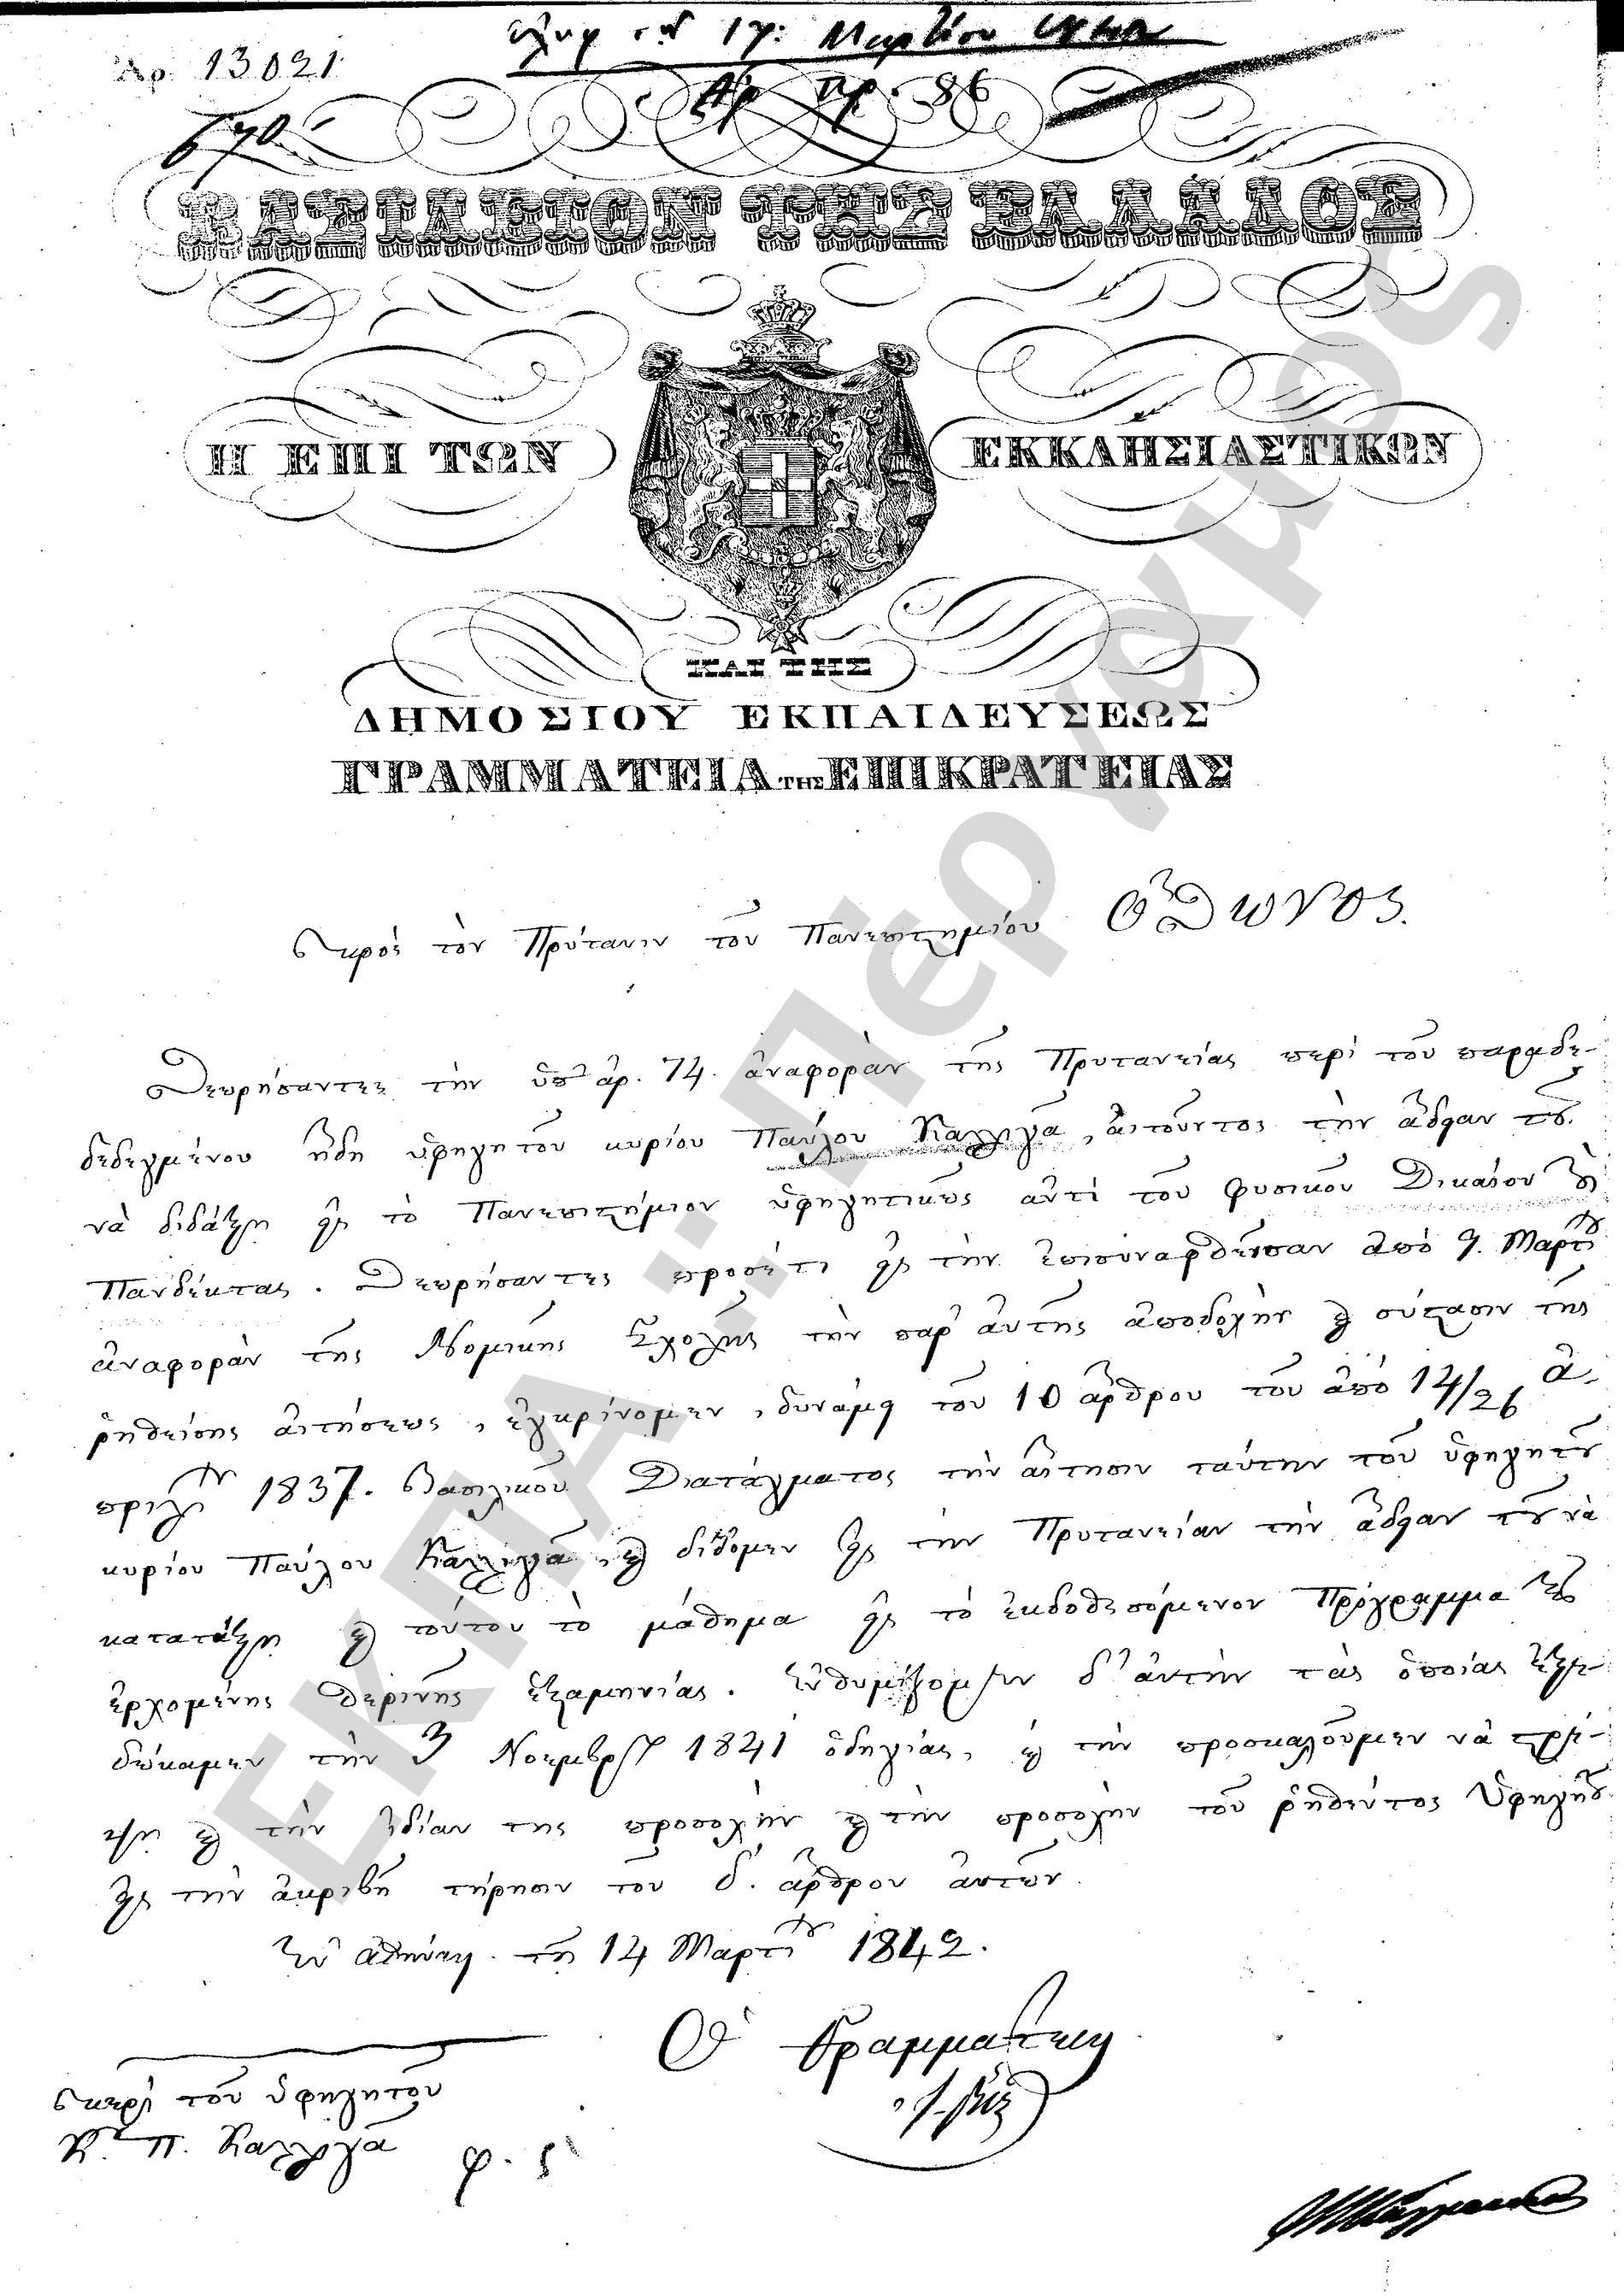 Ἀρ. 13021
ἐλήφ. τῇ 17: Μαρτίου
Ἀρ. πρ. 86
670
ΒΑΣΙΛΕΙΟΝ ΤΗΣ ΕΛΛΑΔΟΣ
Η ΕΠΙ ΤΩΝ ΕΚΚΛΗΣΙΑΣΤΙΚΩΝ
ΚΑΙ ΤΗΣ
ΔΗΜΟΣΙΟΥ ΕΚΠΑΙΔΕΥΣΕΩΣ
ΓΡΑΜΜΑΤΕΙΑ ΤΗΣ ΕΠΙΚΡΑΤΕΙΑΣ
Πρὸς τὸν Πρύτανιν τοῦ Πανεπιστημίου Ὄθωνος.
Θεωρήσαντες τὴν ὑπ' ἀρ. 74. ἀναφορὰν τῆς Πρυτανείας περὶ τοῦ παραδε-
δεγμένου ἤδη ὑφηγητοῦ κυρίου Παύλου Καλλιγᾶ, αἰτοῦντος τὴν ἄδειαν τοῦ
νὰ διδάξῃ εἰς τὸ Πανεπιστήμιον ὑφηγητικῶς ἀντὶ τοῦ φυσικοῦ Δικαίου τὰς
Πανδέκτας. Θεωρήσαντες προσέτι εἰς τὴν ἐπισυναφθεῖσαν ἀπὸ 9. Μαρτίου
ἀναφορὰν τῆς Νομικῆς Σχολῆς τὴν παρ' αὐτῆς ἀποδοχὴν καὶ σύστασιν τῆς
ῥηθείσης αἰτήσεως, ἐγκρίνομεν, δυνάμει τοῦ 10 ἄρθρου τοῦ ἀπὸ 14/26 Ἀ-
πριλίου 1837. Βασιλικοῦ Διατάγματος τὴν αἴτησιν ταύτην τοῦ ὑφηγητοῦ
κυρίου Παύλου Καλλιγᾶ, καὶ δίδομεν εἰς τὴν Πρυτανείαν τὴν ἄδειαν τοῦ νὰ
κατατάξῃ καὶ τοῦτον τὸ μάθημα εἰς τὸ ἐκδοθησόμενον Πρόγραμμα τῆς
ἐρχομένης θερινῆς ἑξαμηνίας. Ἐνθυμίζομεν δ' αὐτὴν τὰς ὁποίας ἐξε-
δώκαμεν τὴν 3 Νοεμβρίου 1841 ὁδηγίας, καὶ τὴν προσκαλοῦμεν νὰ τρέ-
ψῃ καὶ τὴν ἰδίαν της προσοχὴν καὶ τὴν προσοχὴν τοῦ ῥηθέντος Ὑφηγητοῦ
εἰς τὴν ἀκριβῆ τήρησιν τοῦ δ'. ἄρθρου αὐτῶν.
Ἐν Ἀθήναις τῇ 14 Μαρτίου 1842.
Ὁ Γραμματεὺς
Περὶ τοῦ ὑφηγητοῦ
Κου Π. Καλλιγᾶ
ΕΚΠΑ :: Πέργαμος